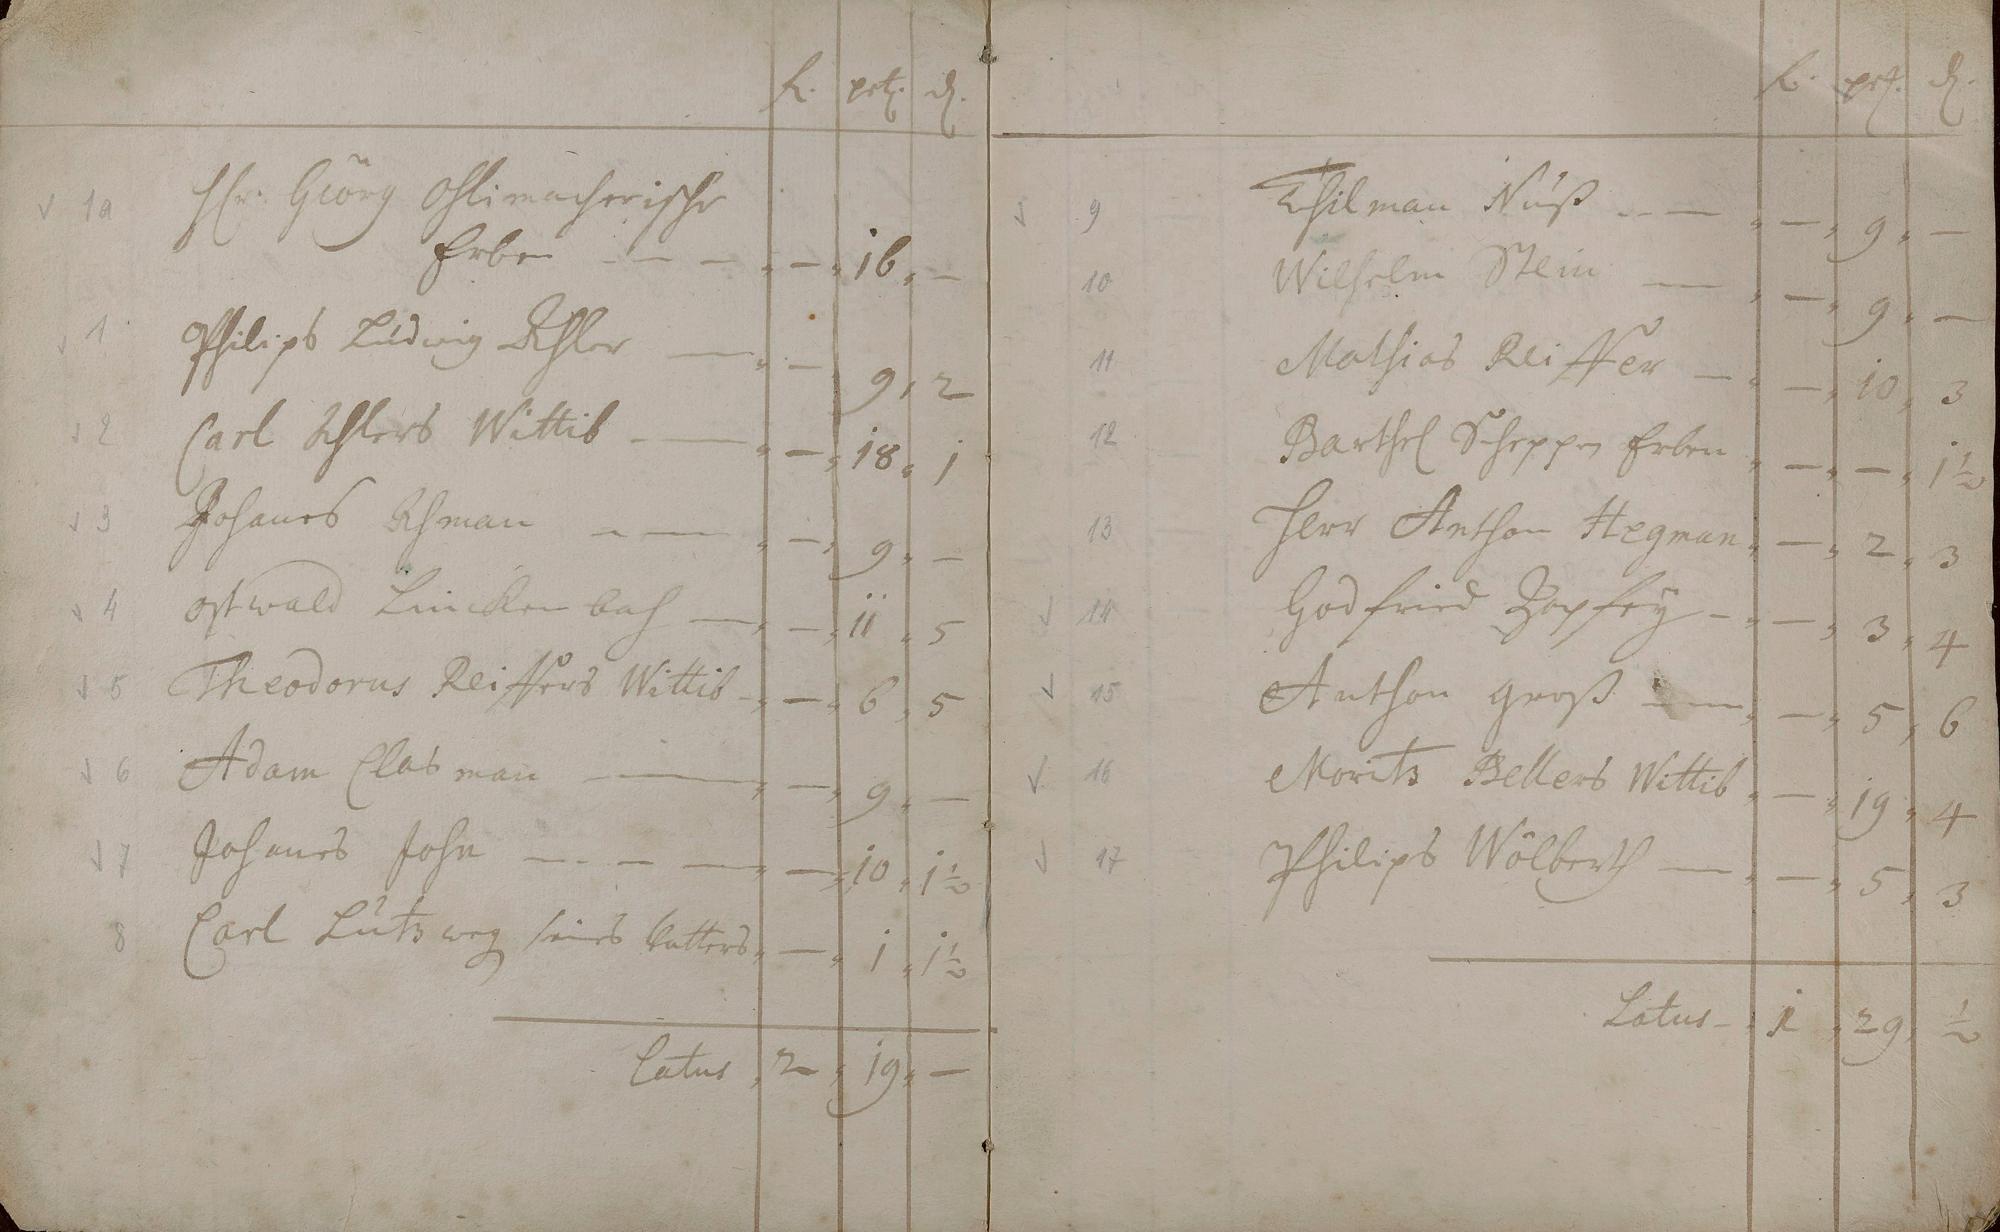 fl. petz. d.
√ 1a Hr. Görg Ohlimacherische
Erben — — — " — " 16 " —
√ 1 Philips Ludwig Ahler — " — " 9 " 2
√ 2 Carl Ahlers Wittib — " — " 18 " 1
√ 3 Johanes Ahman — — " — " 9 " —
√ 4 Ostwald Linckenbach — " — " 11 " 5
√ 5 Theodorus Reiffers Wittib — " — " 6 " 5
√ 6 Adam Clasman — " — " 9 " —
√ 7 Johanes John — — — " — " 10 " 1½
8 Carl Lutzweg seines Vatters " — " 1 " 1½
Latus " 2 " 19 " —
fl. petz. d.
√ 9 Thilman Nüß — — " — " 9 " —
10 Wilhelm Stein — " — " 9 " —
11 Mathias Reiffer — " — " 10 " 3
12 Barthel Scheppen Erben " — " — " 1½
13 Herr Anthon Hegman " — " 2 " 3
√ 14 Godfried Zopfey — " — " 3 " 4
√ 15 Anthon Groß — — " — " 5 " 6
√ 16 Moritz Bellers Wittib " — " 19 " 4
√ 17 Philips Wölberth — " — " 5 " 3
Latus — " 1 " 29 " ½